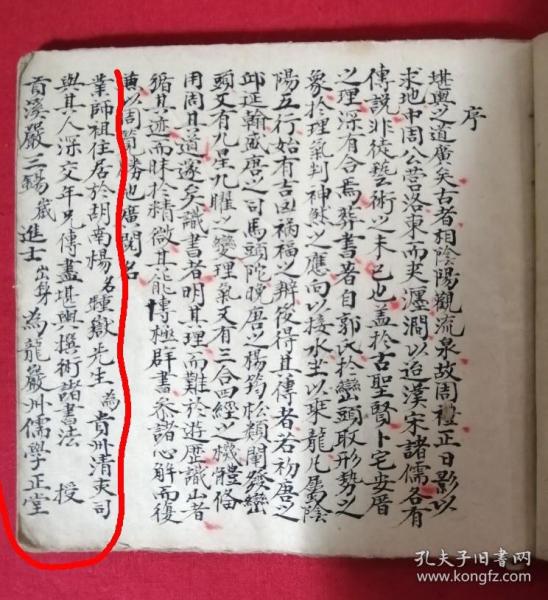 序
堪輿之道廣矣古者相陰陽觀流泉故周禮正日影以
求地中周公營洛東而夾瀍澗以迨漢宋諸儒各有
傳說非徒藝術之末已也蓋於古聖賢卜宅安厝
之理深有合焉葬書著自郭氏於巒頭取形勢之
象於理氣判神煞之應向以接水坐以乘龍凡屬陰
陽五行始有吉凶禍福之辨後得其傳者若初唐之
邱延翰盛唐之司馬頭陀晚唐之楊筠松類闡發巒
頭又有九星九曜之變理氣又有三合四經之機體備
用周其道遂矣識書者明其理而難於遊歷識山者
循其迹而昧於精微其能博極群書參諸心解而復
以周覽勝也廣聞名
業師祖住居於胡南楊名鍾嶽先生為貴州清吏司
與其人深交年兄傳盡堪輿撰術諸書法 授
貢溪嚴三錫歲進士出身為龍巖州儒學正堂
孔夫子旧书网
www.kongfz.com